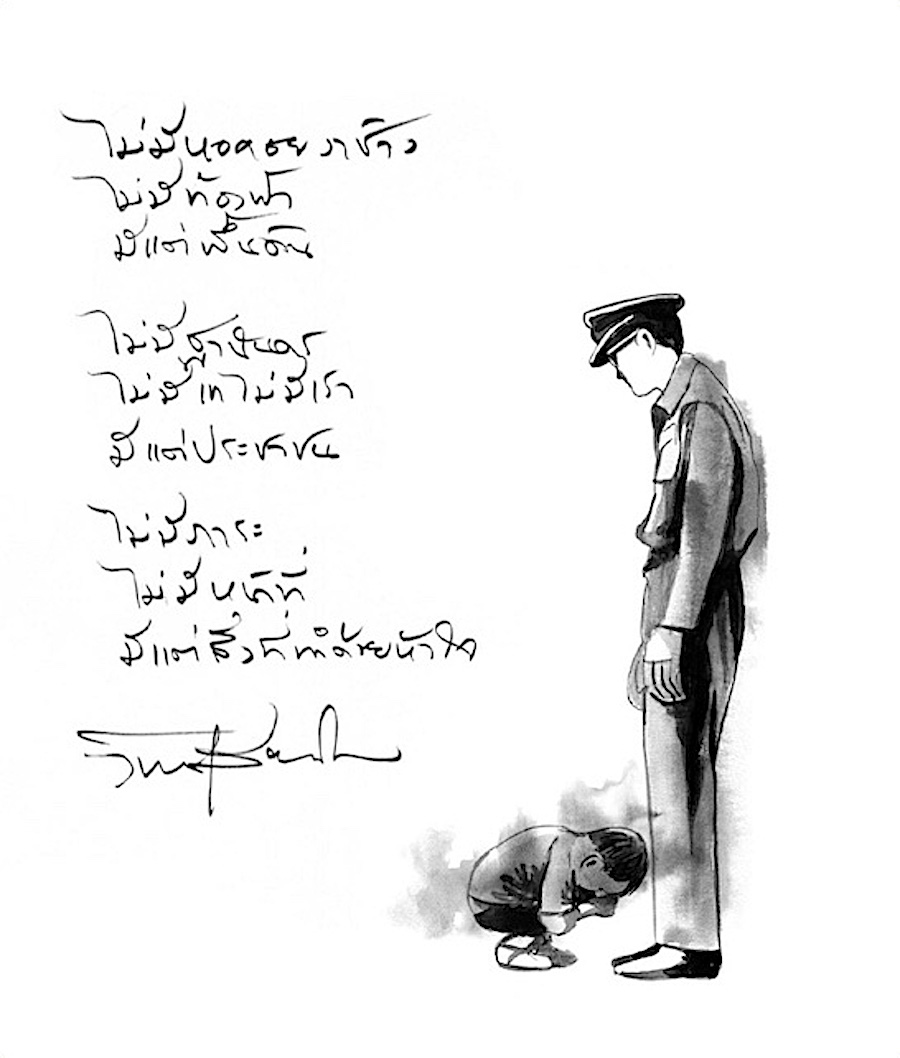 ไม่มีหอคอยงาช้าง
ไม่มีท้องฟ้า
มีแต่พื้นดิน
ไม่มีฐานันดร
ไม่มีเขาไม่มีเรา
มีแต่ประชาชน
ไม่มีภาระ
ไม่มีหน้าที่
มีแต่สิ่งที่ทำด้วยหัวใจ